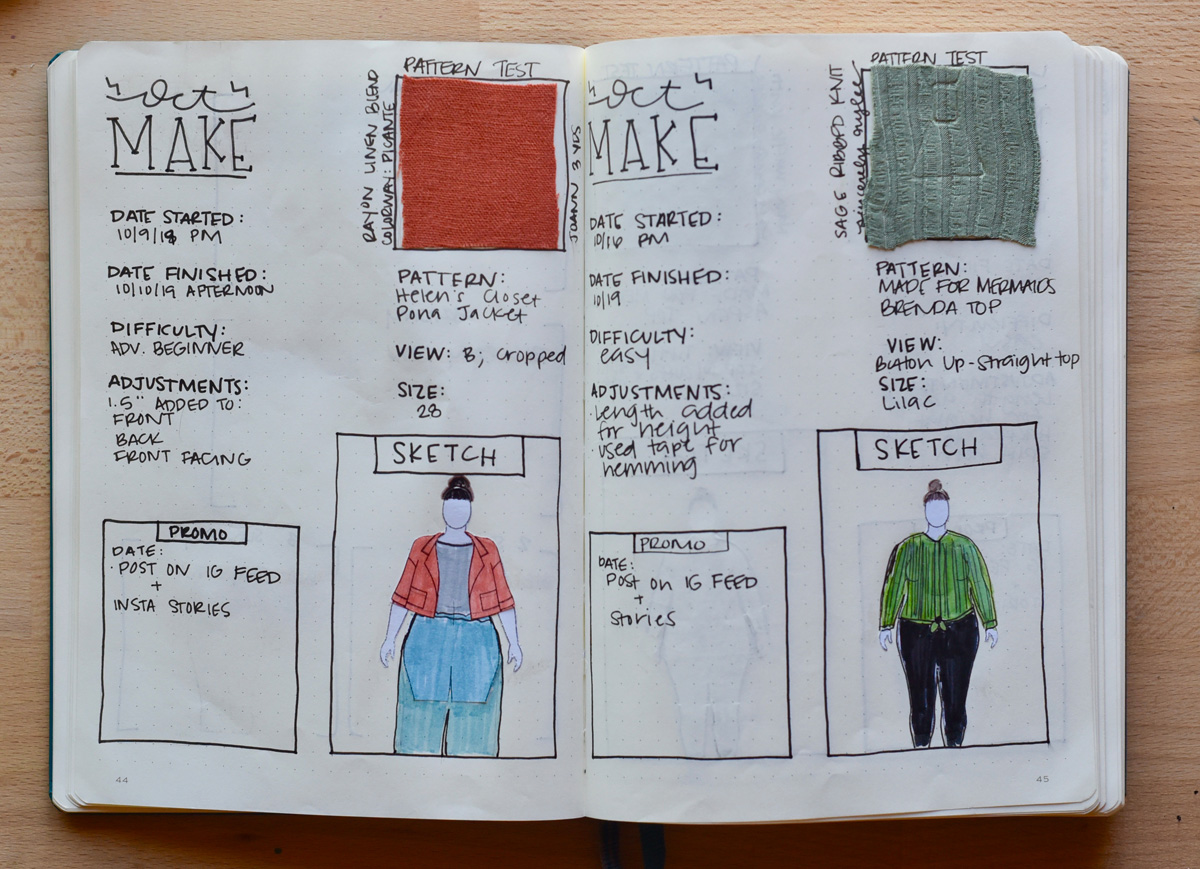 Oct
MAKE
DATE STARTED:
10/9/19 PM
DATE FINISHED:
10/10/19 AFTERNOON
DIFFICULTY:
ADV. BEGINNER
ADJUSTMENTS:
1.5" ADDED TO:
FRONT
BACK
FRONT FACING
PROMO
DATE:
· POST ON IG FEED
+
INSTA STORIES
44
PATTERN TEST
RAYON LINEN BLEND
COLORWAY: PICANTE
JOANN 3 YDS
PATTERN:
Helen's Closet
Pona Jacket
VIEW: B; cropped
SIZE:
28
SKETCH
Oct
MAKE
DATE STARTED:
10/16 PM
DATE FINISHED:
10/19
DIFFICULTY:
easy
ADJUSTMENTS:
· Length added
for height
· used tape for
hemming
PROMO
DATE:
Post on IG FEED
+
Stories
PATTERN TEST
SAGE RIBBED KNIT
sincerely rylee
PATTERN:
MADE FOR MERMAIDS
BRENDA TOP
VIEW:
Button Up-straight top
SIZE:
Lilac
SKETCH
45